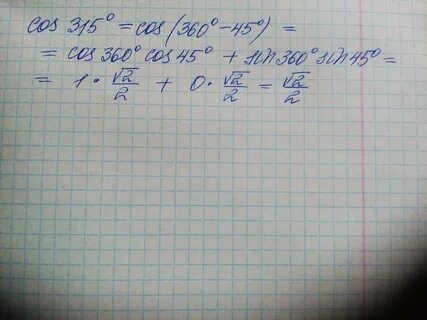 cos 315° = cos (360° - 45°) =
= cos 360° cos 45° + sin 360° sin 45° =
= 1 · √2/2 + 0 · √2/2 = √2/2